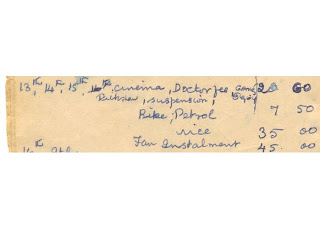 13th, 14th, 15th, 16th, cinema, Doctor fee 20 60
Rickshaw, suspension,
Bike, Petrol 7 50
rice 35 00
Fan Instalment 45. 00